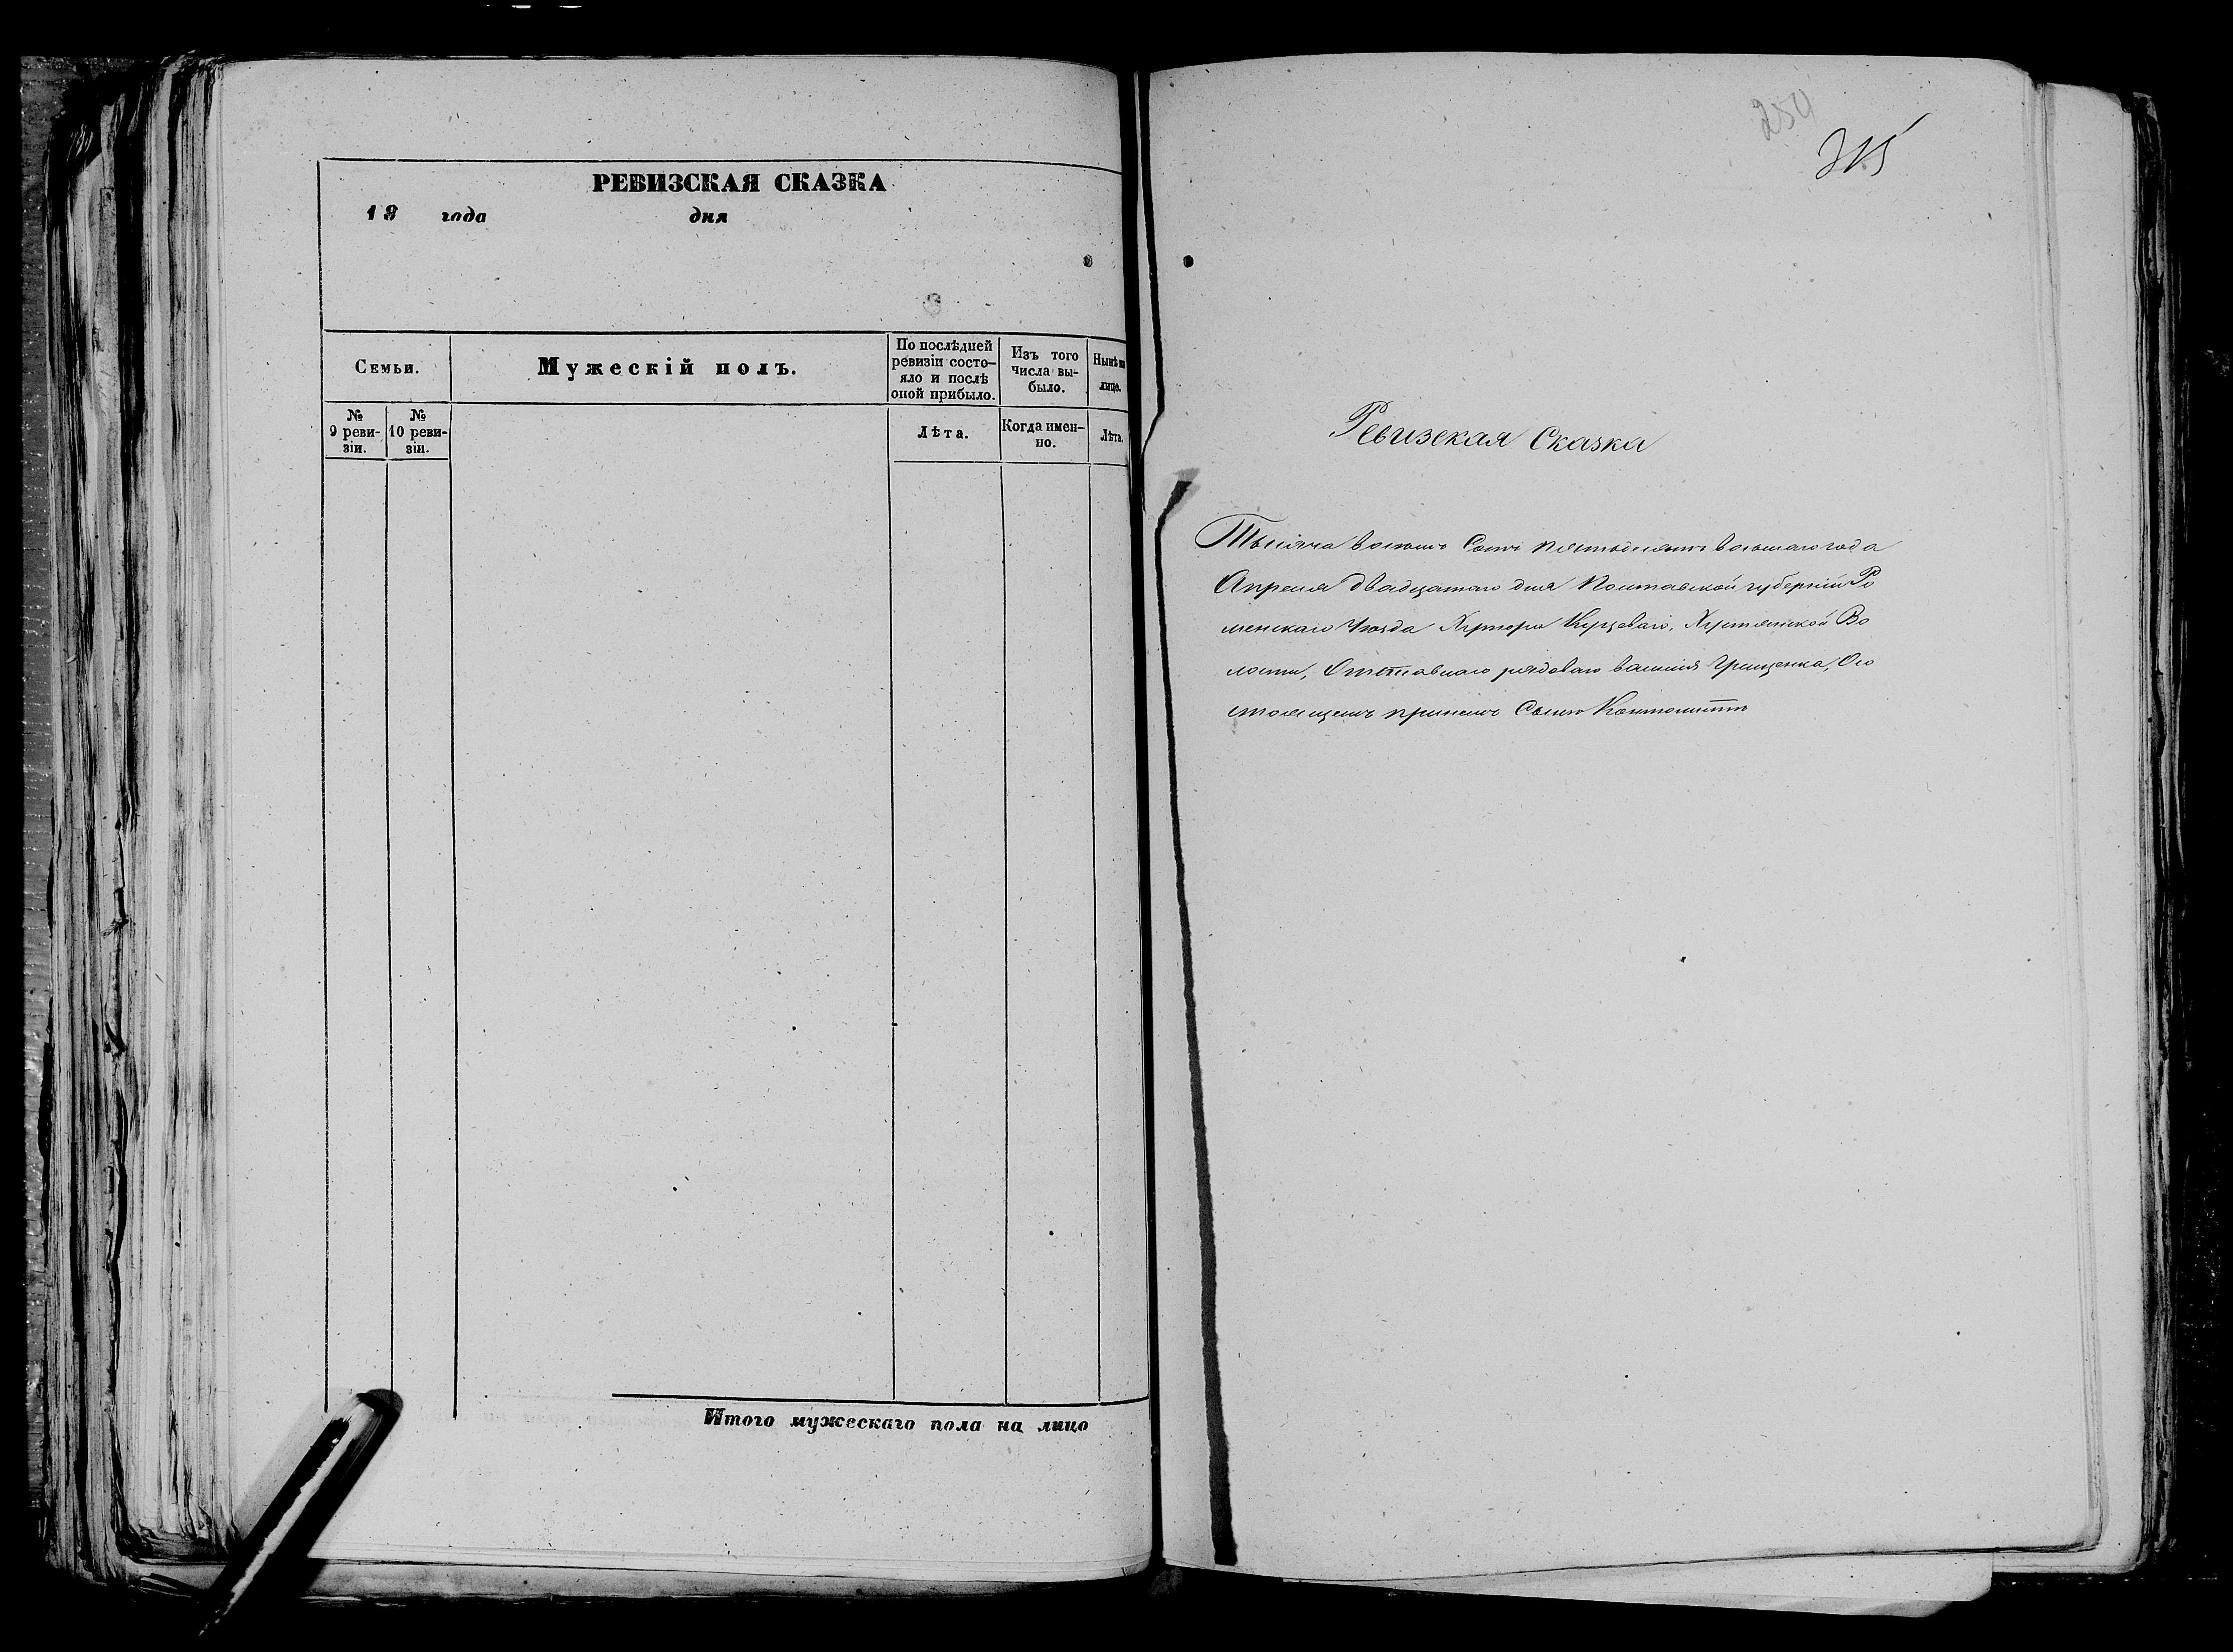 РЕВИЗСКАЯ СКАЗКА
18 года дня
Семьи.
Мужескій полъ.
По послѣдней
ревизіи состо-
яло и послѣ
оной прибыло.
Изъ того
числа вы-
было.
Нынѣ на
лицо.
№
9 реви-
зіи.
№
10 реви-
зіи.
Лѣта.
Когда имен-
но.
Лѣта.
Итого мужескаго пола на лицо
254
315
Ревизская Сказка
Тысяча восемь Сотъ пятьдесятъ восьмаго года
Апреля двадцатаго дня Полтавской губерніи Ро
менскаго Уезда Хутора Во
лости, Отставнаго рядоваго Грищенка, О со
стоящемъ принемъ Сыне Кантонисте